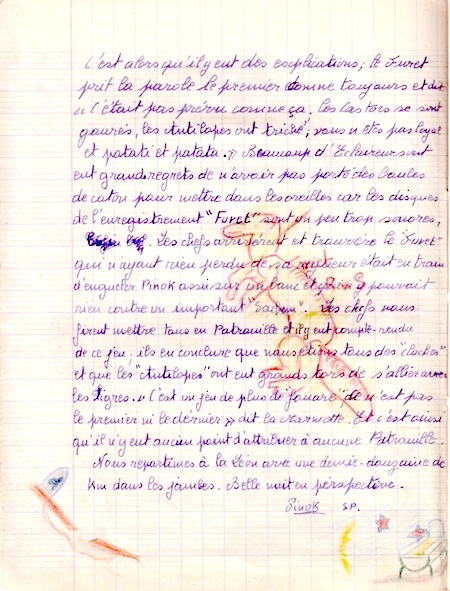 C'est alors qu'il y eut des explications; le Furet
prit la parole le premier comme toujours et dit
" C'était pas prévu comme ça, les Castors se sont
gourés, les Antilopes ont triché, vous n'êtes pas loyal
et patati et patata. » Beaucoup d'Eclaireurs ont
eut grands regrets de n'avoir pas porté des boules
de coton pour mettre dans les oreilles car les disques
de l'enregistrement "Furet" sont un peu trop sonores,
Les chefs arrivèrent et trouvère le Furet
qui n'ayant rien perdu de sa était en train
d'engueler Pinok assis sur un banc et qui n'y pouvait
rien contre un important "Saigneur". Les chefs nous
firent mettre tous en Patrouille et il y eut compte-rendu
de ce jeu. ils en conclure que nous étions tous des "cloches"
et que les "Antilopes" ont eut grands tors de s'allier avec
les Tigres. « C'est un jeu de plus de fouaré" ce n'est pas
le premier ni le dernier » dit la marmotte. Et c'est ainsi
qu'il n'y eut aucun point d'attribuer à aucune Patrouille.
Nous repartimes à la avec une demie-douzaine de
Km dans les jambes. Belle nuit en perspective.
Pinok SP.